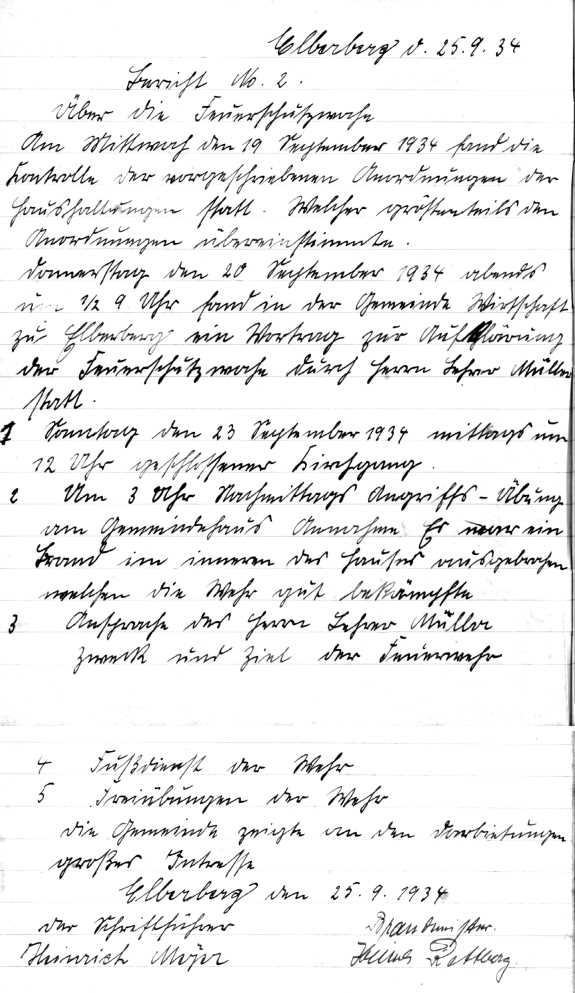 Elberberg d. 25.9.34
Bericht No. 2.
Über die Feuerschutzwoche
Am Mittwoch den 19 September 1934 fand die
Kontrolle der vorgeschriebenen Anordnungen der
Haushaltungen statt. Welcher gröstenteils den
Anordnungen übereinstimmte.
Donnerstag den 20 September 1934 abends
um 1/2 9 Uhr fand in der Gemeinde Wirtschaft
zu Elberberg ein Vortrag zur Aufklärung
der Feuerschutzwoche durch Herrn Lehrer Müller
statt.
1 Sonntag den 23 September 1934 mittags um
12 Uhr geschlossener Kirchgang.
2 Um 3 Uhr Nachmittags Angriffs-Übung
am Gemeindehaus Annahme Es war ein
Brand im inneren des Hauses ausgebrochen
welchen die Wehr gut bekämpfte
3 Ansprache des Herrn Lehrer Müller
Zweck und Ziel der Feuerwehr
4 Fußdienst der Wehr
5 Freiübungen der Wehr
Die Gemeinde zeigte an den Darbietungen
großes Intresse
Elberberg den 25.9.1934
Der Schriftführer Brandmeister.
Heinrich Meyer